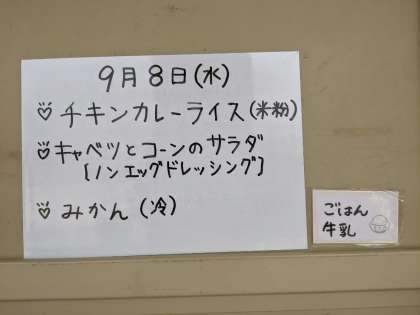 9月8日(水)
♡ チキンカレーライス(米粉)
♡ キャベツとコーンのサラダ
[ノンエッグドレッシング]
♡ みかん(冷)
ごはん
牛乳